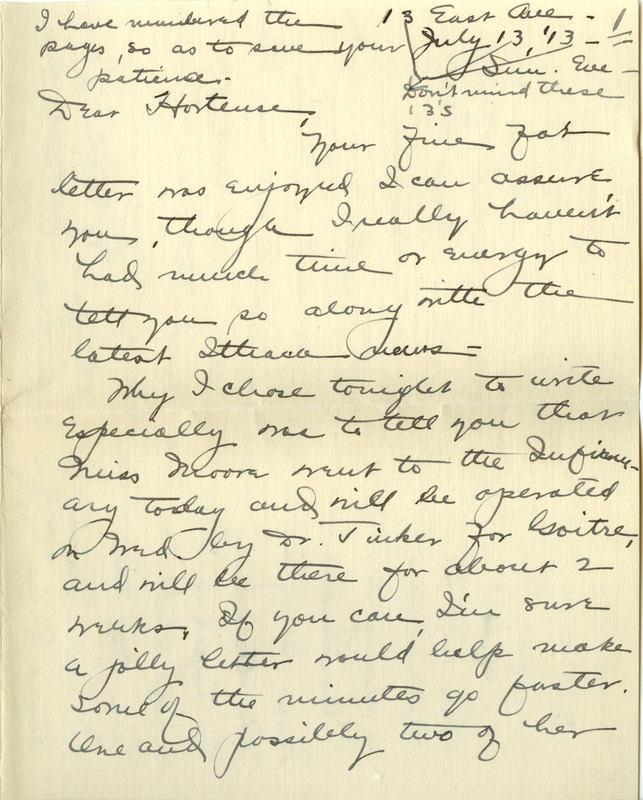 I have numbered the
pages, so as to save your
patience.
13 East Ave - 1
July 13, '13 -
Sun. Eve -
Don't mind these
13's
Dear Hortense,
Your fine fat
letter was enjoyed I can assure
you, though I really haven't
had much time or energy to
tell you so along with the
latest Ithaca news -
Why I chose tonight to write
especially was to tell you that
Miss Moore went to the Infirm-
ary today and will be operated
on Wed. by Dr. Tinker for Goitre,
and will be there for about 2
weeks. If you can, I'm sure
a jolly letter would help make
some of the minutes go faster.
One and possibly two of her